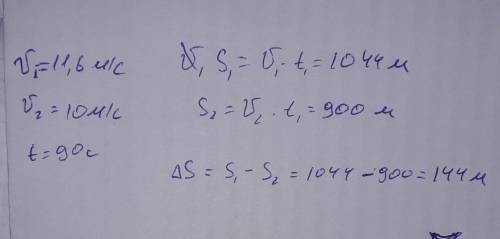 V₁=11,6 м/с
V₂=10м/с
t=90с
V, S₁=V₁·t₁=1044м
S₂=V₂·t₁=900 м
ΔS=S₁-S₂=1044-900=144м